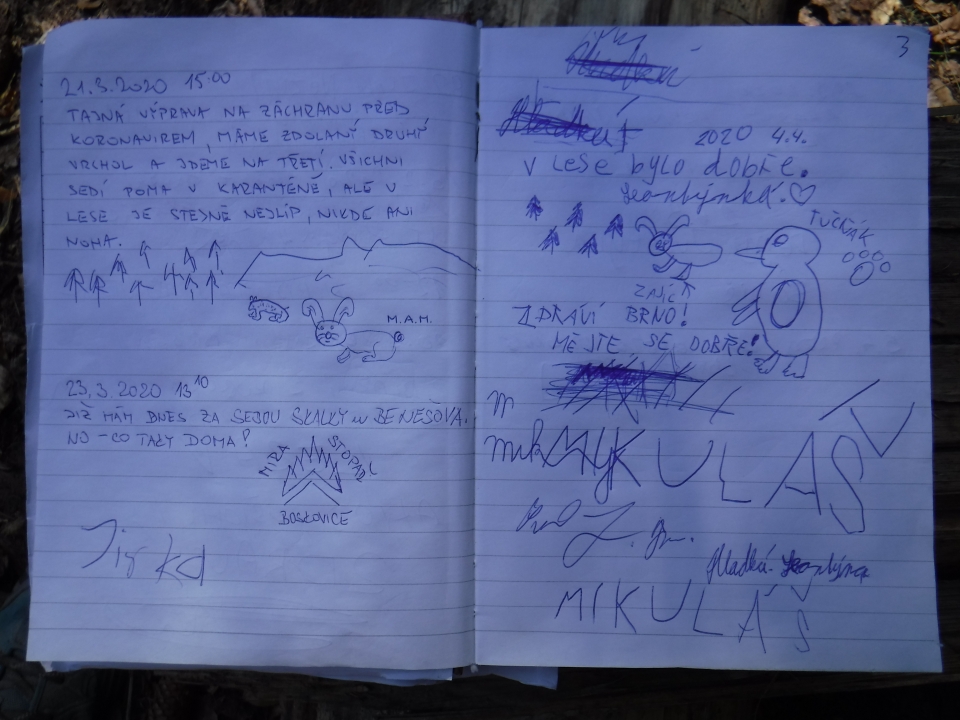 21.3.2020 15:00
TAJNÁ VÝPRAVA NA ZÁCHRANU PŘED
KORONAVIREM, MÁME ZDOLANÝ DRUHÝ
VRCHOL A JDEME NA TŘETÍ. VŠICHNI
SEDÍ DOMA V KARANTÉNĚ, ALE V
LESE JE STEJNĚ NEJLÍP, NIKDE ANI
NOHA.
M.A.M.
23.3.2020 13 10
JIŽ MÁM DNES ZA SEBOU SKALKY BENEŠOVA.
NO - CO TAKY DOMA?
MÍRA STOPAŘ
BOSKOVICE
Jirka
3
2020 4.4.
V LESE BYLO DOBŘE.
TUČŇÁK
ZAJÍC
ZDRAVÍ BRNO!
MĚJTE SE DOBŘE!
M
MIKULÁŠ
Hladká
MIKULÁŠ